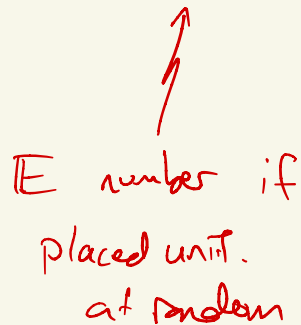 𝔼 number if
placed unif.
at random